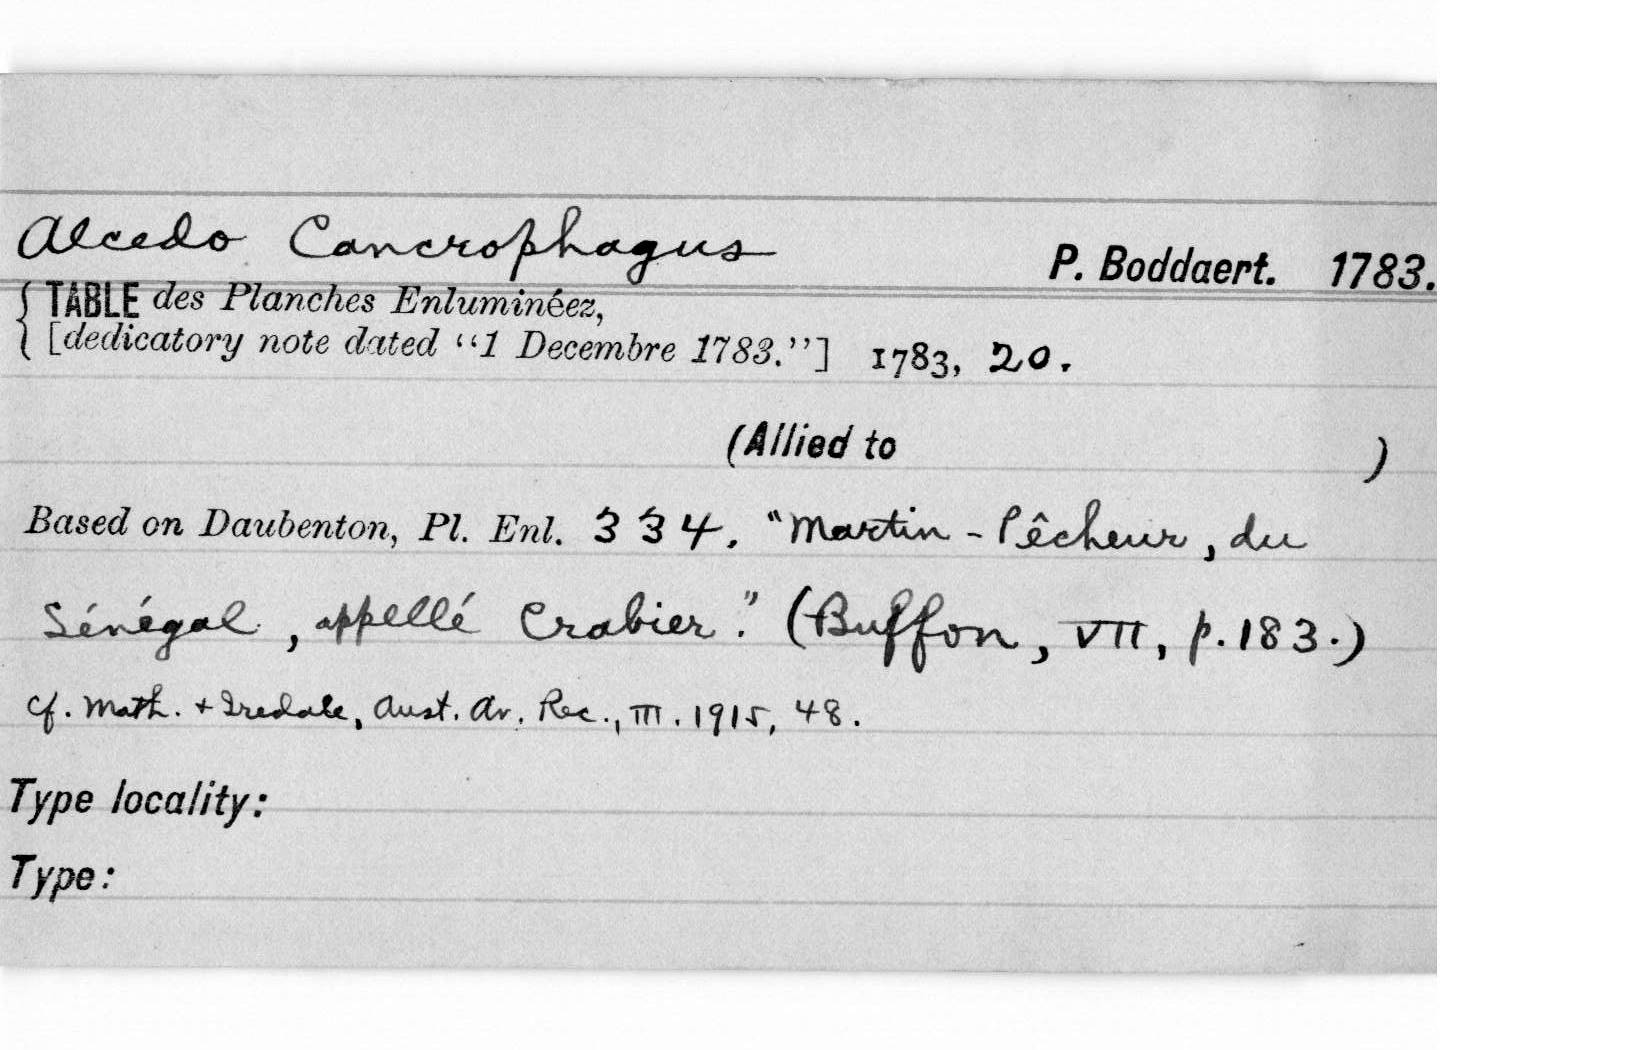 Alcedo Cancrophagus P. Boddaert. 1783.
TABLE des Planches Enluminéez,
[dedicatory note dated "1 Decembre 1783."] 1783, 20.
(Allied to )
Based on Daubenton, Pl. Enl. 334. "Martin-Pêcheur, du
Sénégal, appellé Crabier." (Buffon, VII, p. 183.)
Cf. Math. + Iredale, Aust. Av. Rec., III. 1915, 48.
Type locality:
Type: